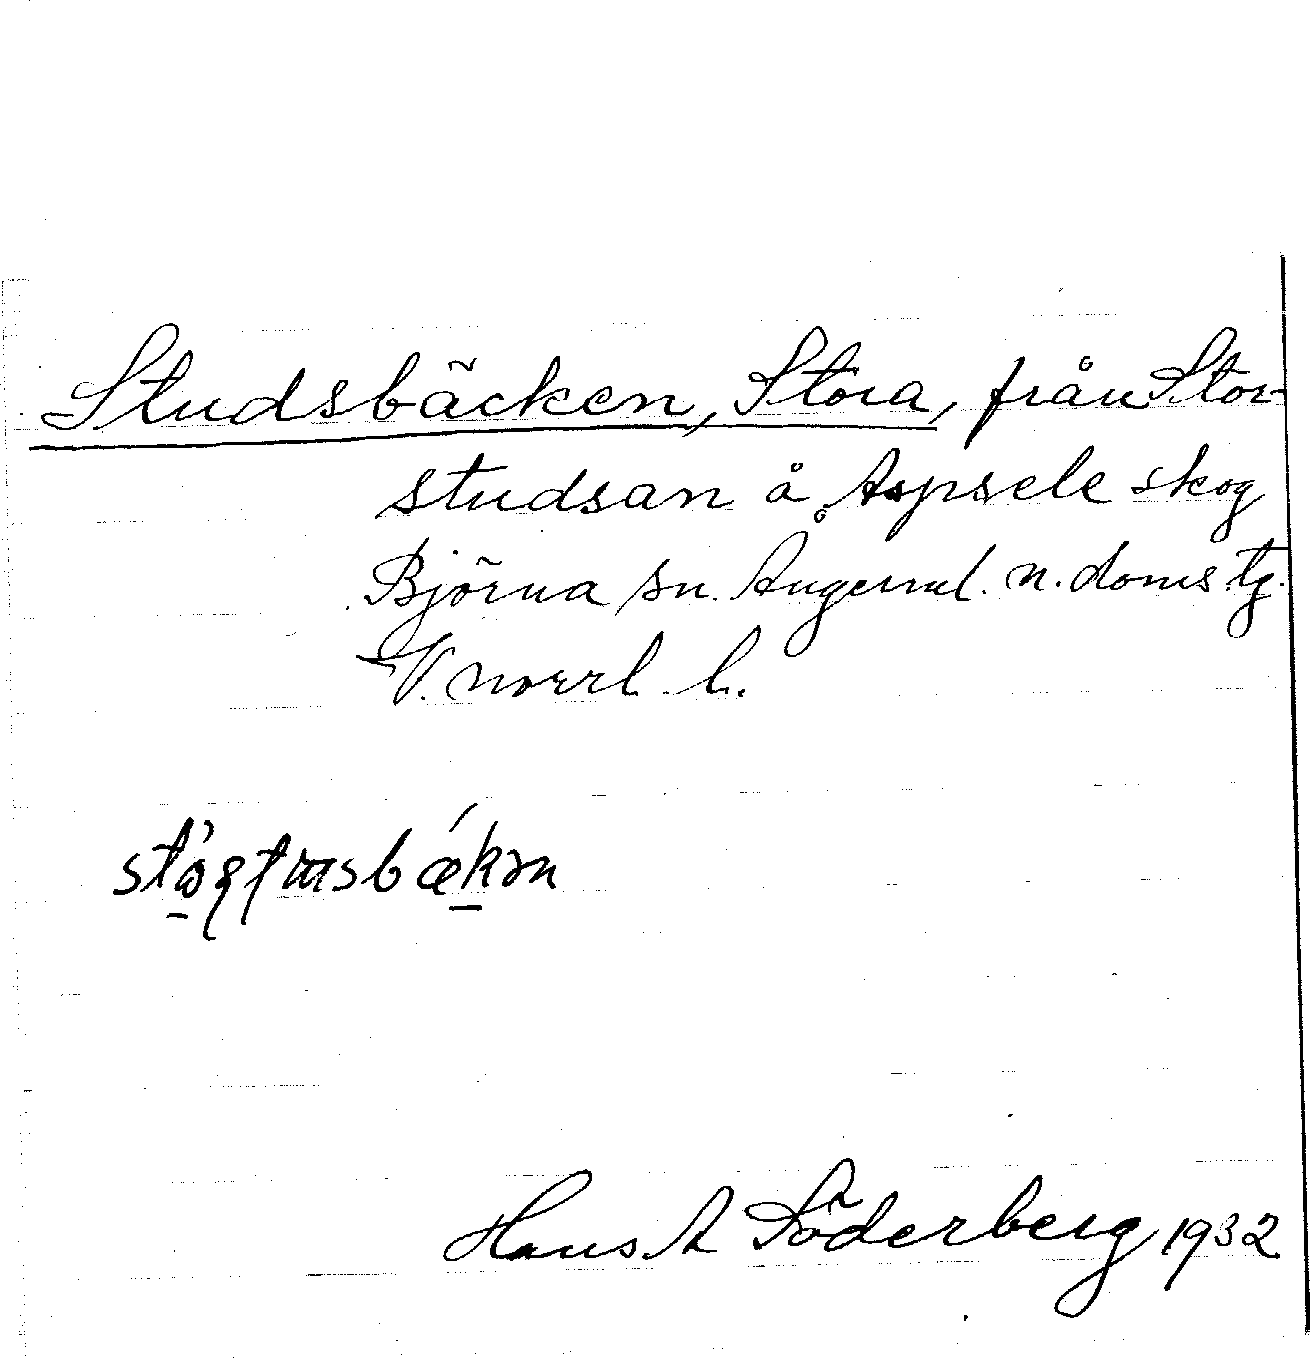 Studsbäcken, Stora, från Stor-
studsan å Aspsele skog
Björna sn. Ångerml. n. doms. tg.
V. norrl. l.
Hans A Söderberg 1932